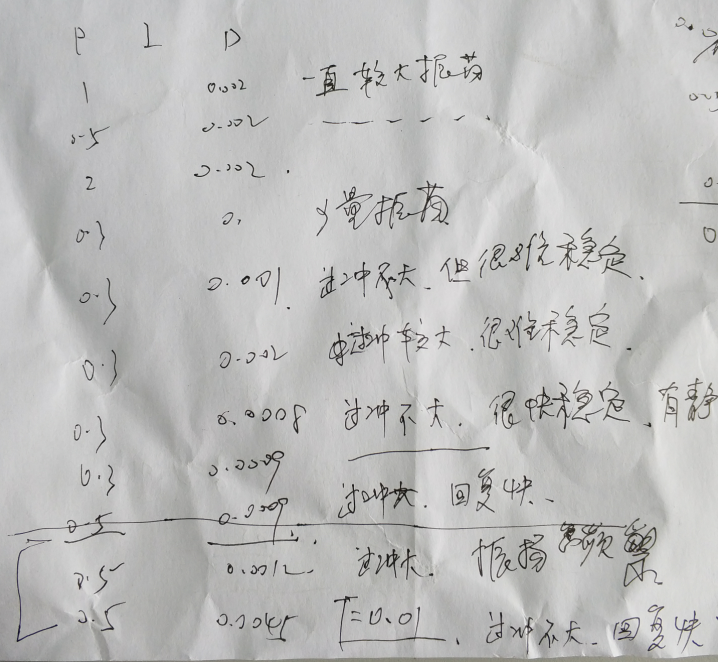 P I D
1 0.002 一直较大振荡
0.5 0.002 ------
2 0.002.
0.3 0. 少量振荡
0.3 0.001 过冲不大.但很难稳定.
0.3 0.002 过冲较大.很难稳定.
0.3 0.0008 过冲不大.很快稳定.有静
0.3 0.0009
0.5 0.009 过冲大.回复快.
0.5 0.0012. 过冲大.振荡频繁
0.5 0.0045 I=0.01.过冲不大.回复快